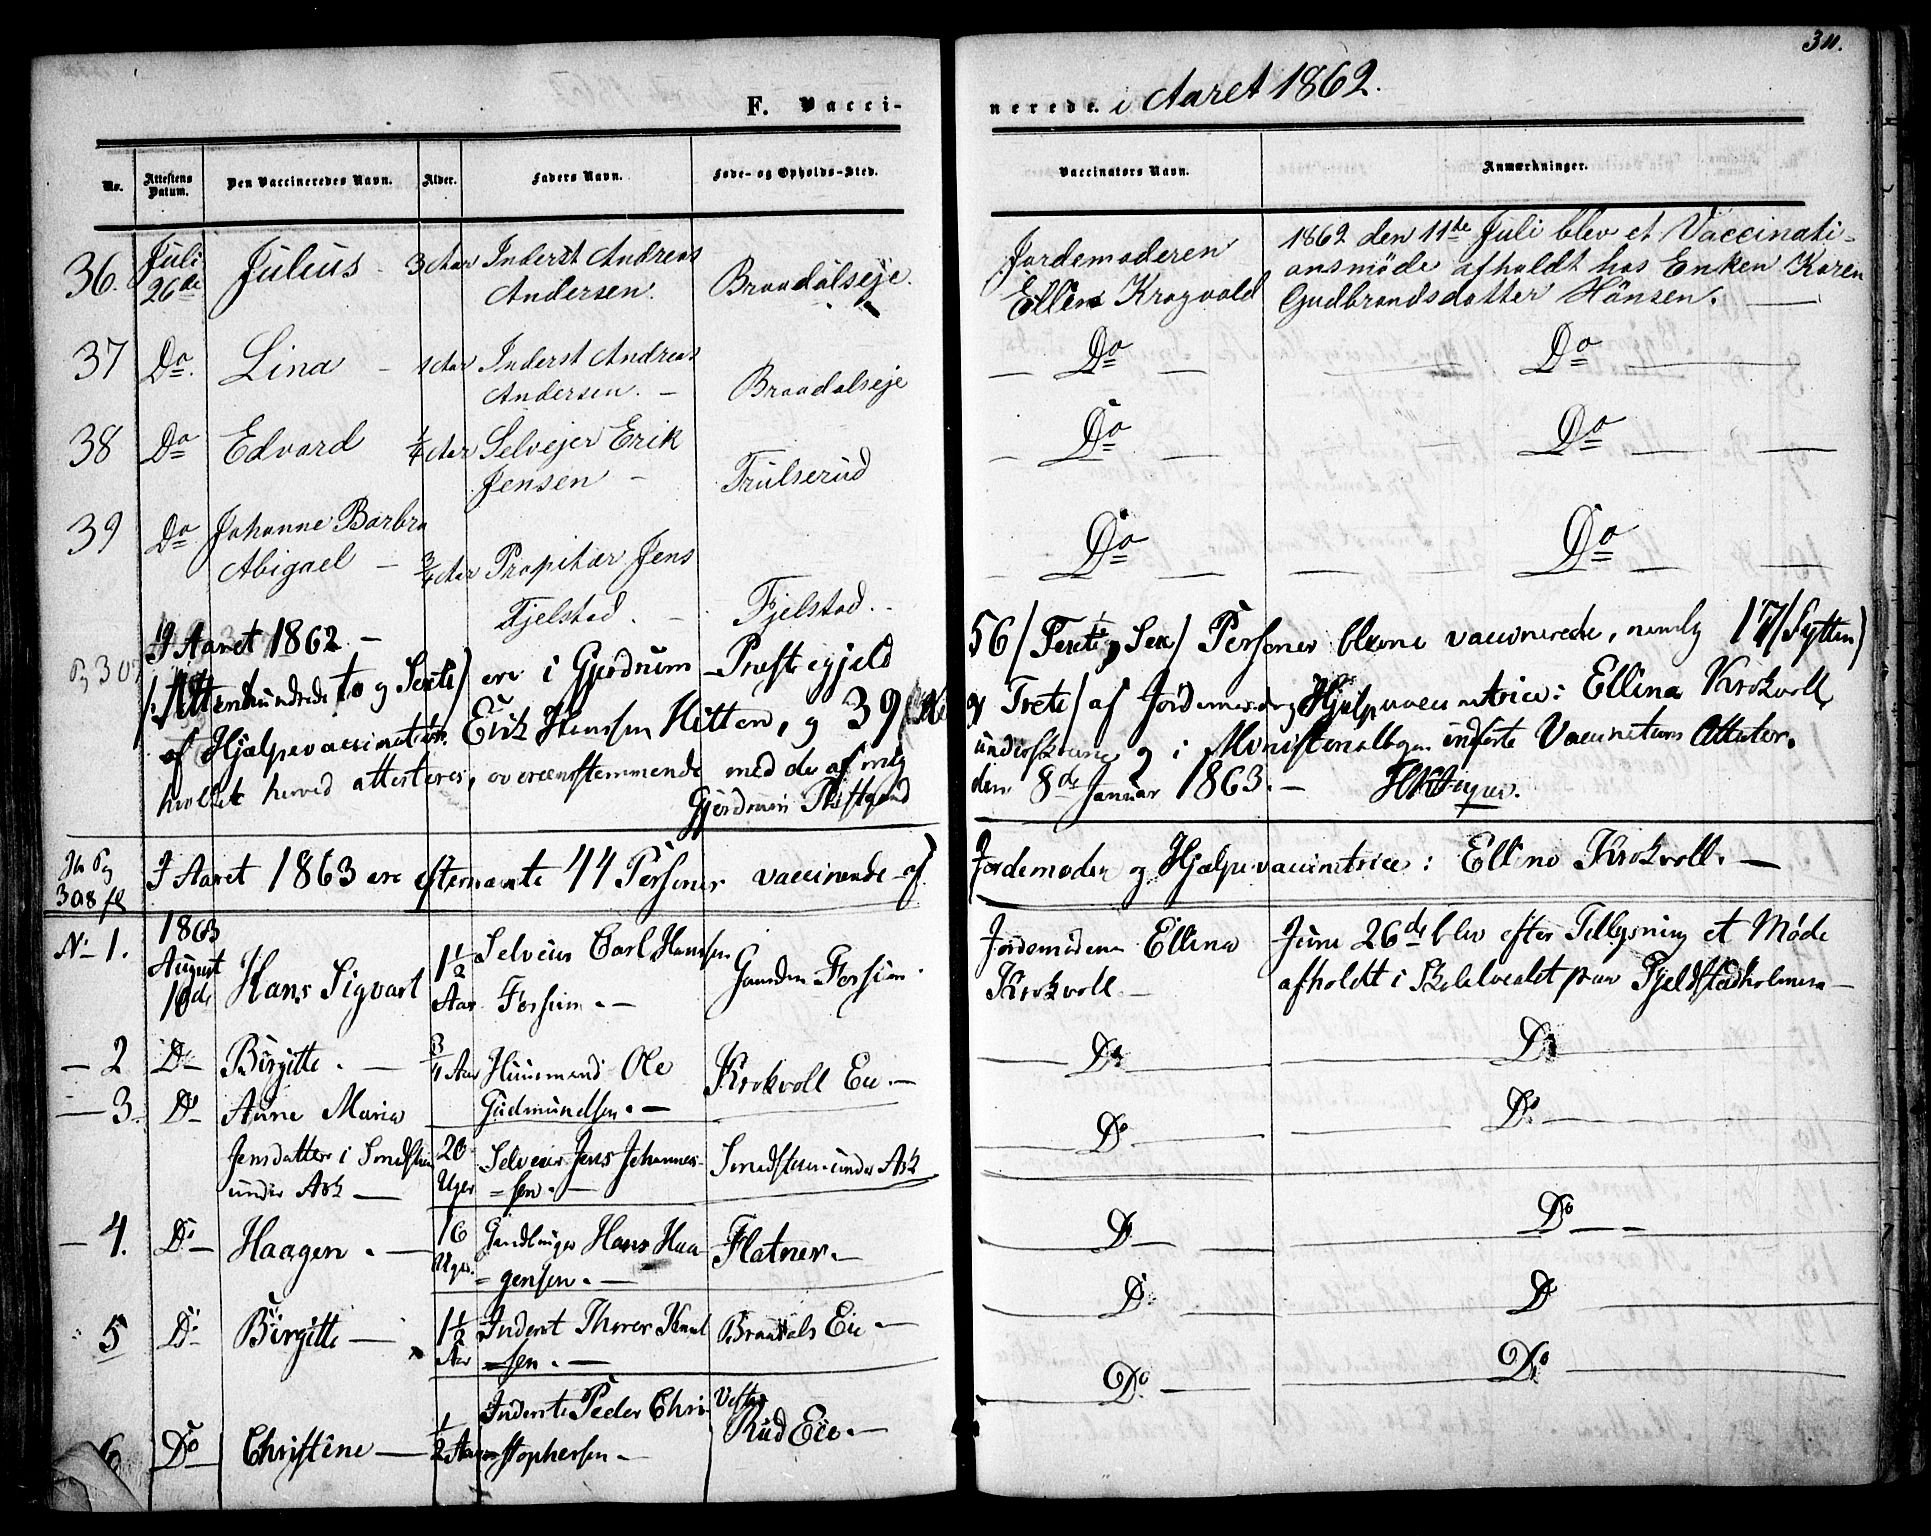 311.
F. Vacci-
nerede. i Aaret 1862.
No. Attestens Datum. Den Vaccineredes Navn. Alder. Faders Navn. Føde- og Opholds-Sted. Vaccinators Navn. Anmærkninger.
36. Juli 26de Julius - 3 Aar Inderst Andreas Andersen. Braadalseje. Jordemoderen Ellen Krogvold 1862 den 11te Juli blev et Vaccinati-
onsmöde afholdt hos Enken Karen
Gudbrandsdatter Hänsen. -
37 Do. Lina - 1 Aar Inderst Andreas Andersen. - Braadalseje - Do - Do -
38 Do Edvard 1/4 Aar Selvejer Erik Jensen - Trulserud - Do - Do -
39 Do Johanne Barbra Abigael - 3/4 Aar Propitær Jens Fjelstad. - Fjelstad. - Do - Do -
I Aaret 1862 -
/: Attenhundrede to og Sexti/ ere i Gjerdrum Præstegjeld 56/ Femti og Sex/ Personer blevne vaccinerede, nemlig 17/Sytten/
af Hjælpevaccinatør Erik Hansen Kitten, og 39/ Ni og Treti/ af Jordemoder og Hjælpevaccinatrice: Ellina Krokvoll,
hvilket herved attesteres, overeensstemmende med de af mig underskrevne og i Ministerialbogen indførte Vaccinations Attester.
Gjerdrum Præstegaard den 8de Januar 1863. -
308
I Aaret 1863 ere efternævnte 44 Personer vaccinerede af Jordemoder og Hjælpevaccinatrice: Ellina Krokvoll. -
No 1. 1863 August 10de Hans Sigvart 1 1/2 Aar Selveier Carl Hansen Forsum. - Forsum. Jordemoderen Ellina Krokvoll - Juni 26de blev efter Tillysning et Møde
afholdt i Skolelocalet paa Fjeldstadholmen -
- 2 Do - Birgitte. - 3/4 Aar Huusmand Ole Gudmundsen. - Krokvoll Eie. - - Do - Do
- 3. Do - Anne Maria Jensdatter i Smedstuen under Ask - 20 Uger Selveier Jens Johannes-
=sen. - Smedstuen under Ask - Do - Do -
- 4. Do - Haagen. - 16 Uger. Hans Haa
=gensen. - Flatner. - - Do - Do -
5 Do Birgitte - 1 1/2 Aar Inderst Thorer Knud
=sen. - Braadals Eie - - Do - Do -
6 Do - Christine - 1/2 Aar Inderste Peder Chri-
=stophersen. - Vestre Rud Eie. - Do - Do -